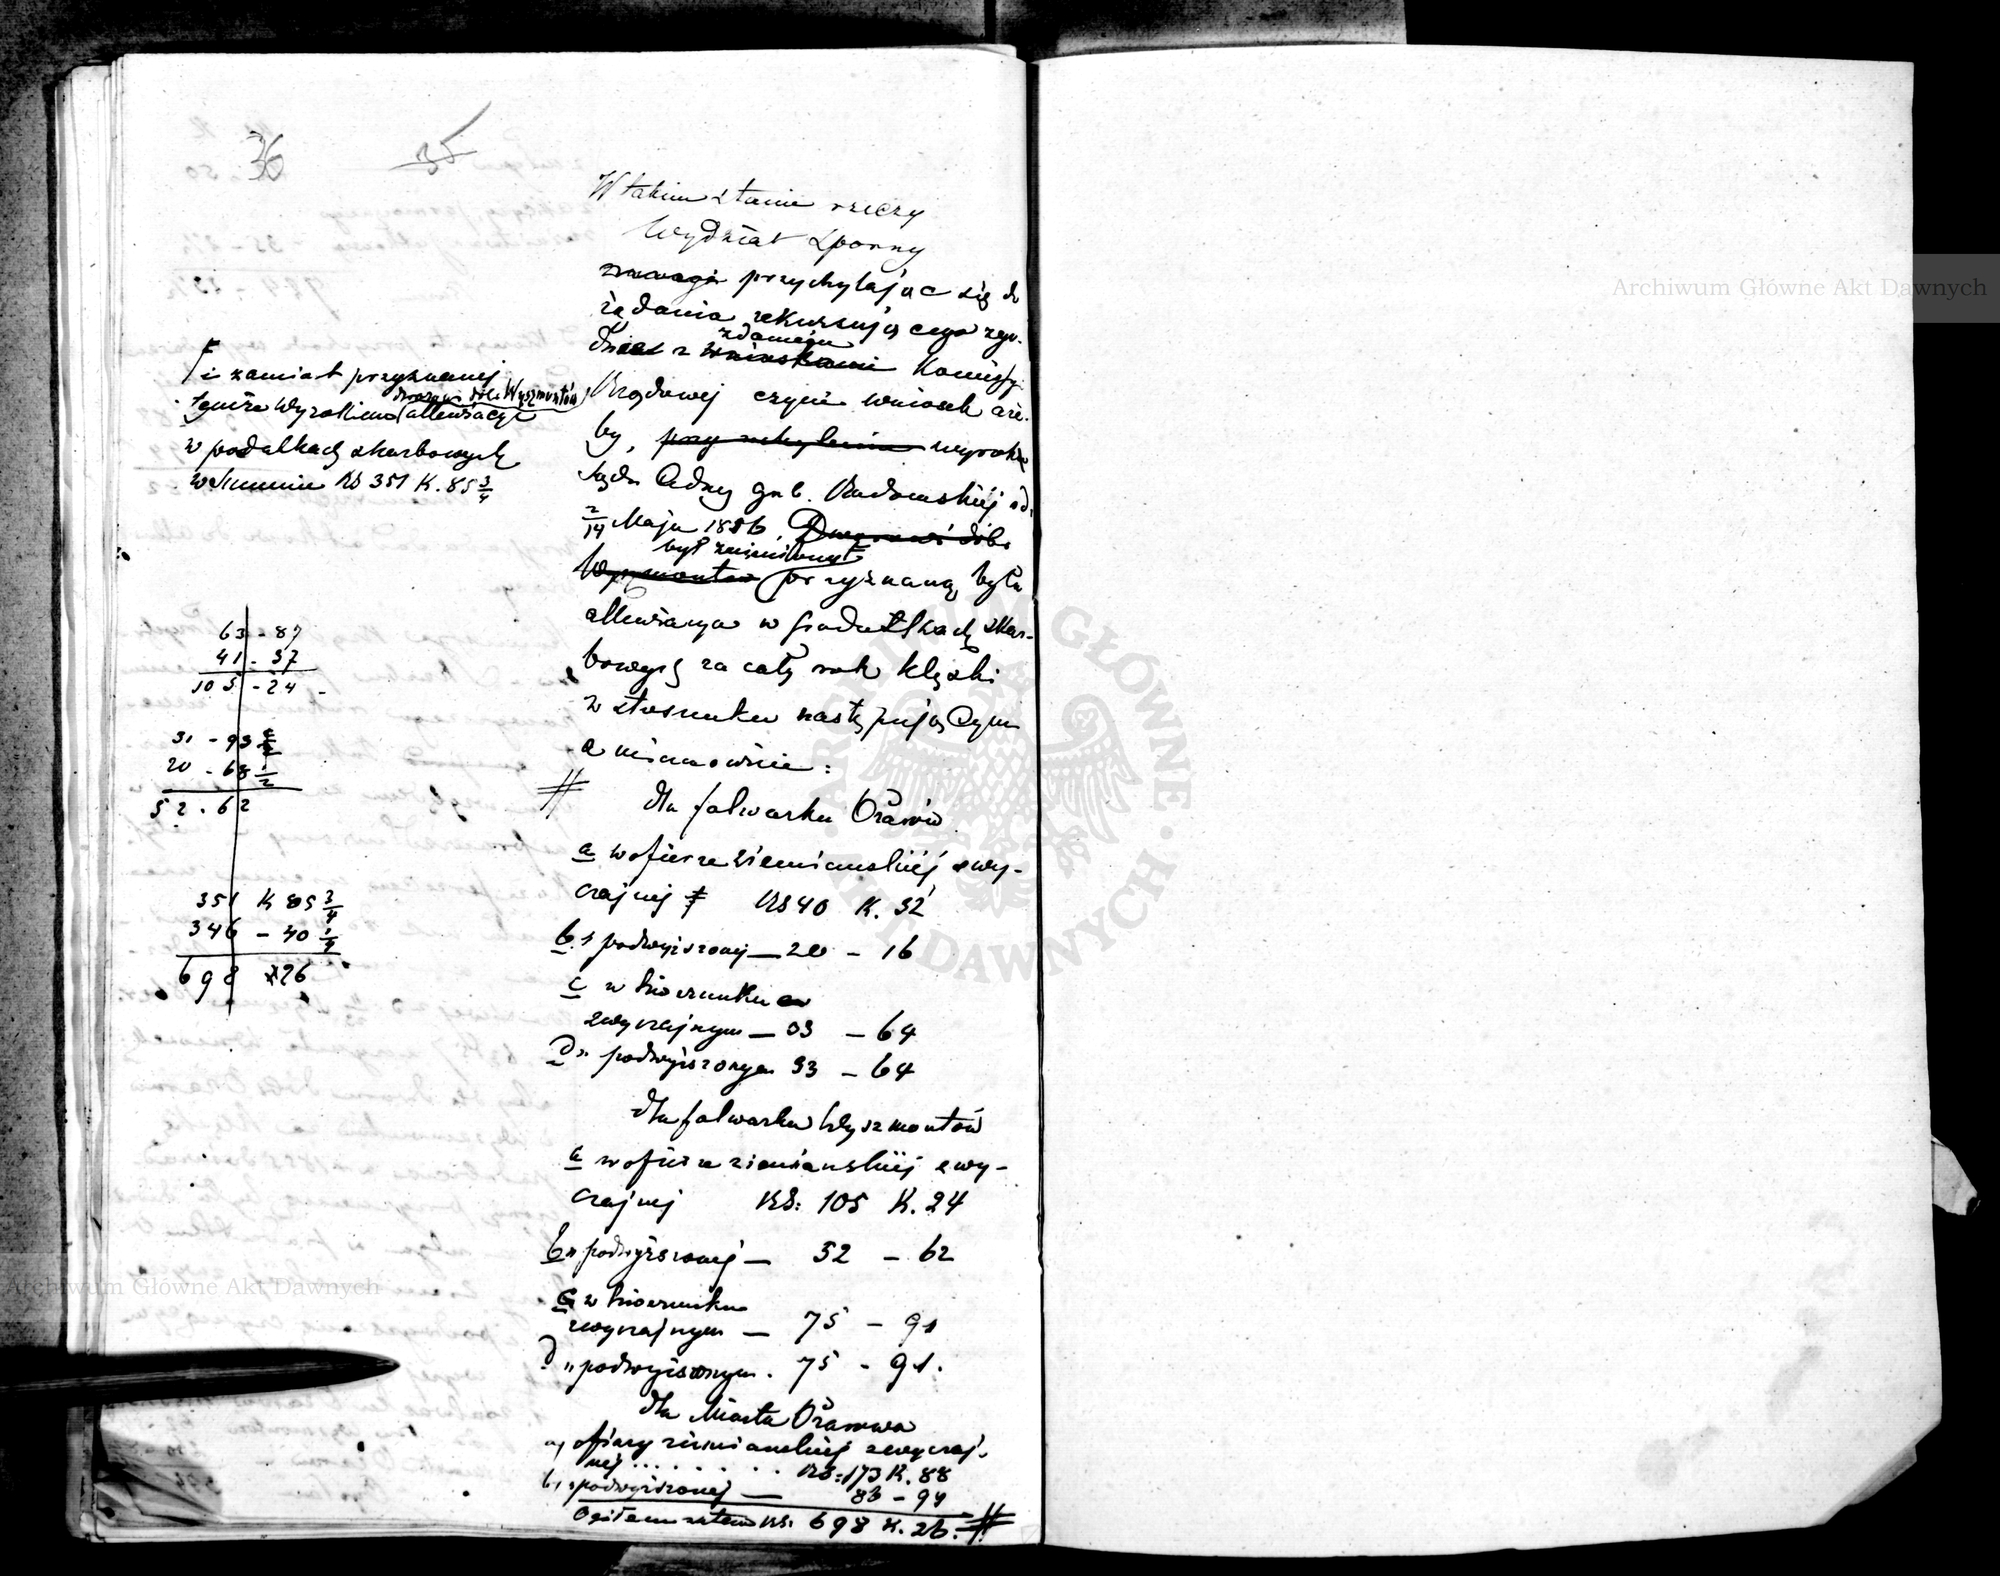 36
35
W takim stanie rzeczy
Wydział Sporny
przychylając się do
żądania rekursującego zgo-
dnie z wnioskami Komissyi
zdaniem
Rządowej czyni wniosek aże-
by, przy uchyleniu wyroku
Sądu Admy gub. Radomskiej od
2/14 Maja 1856, Dworowi dóbr
był zmieniony
Wyszmontów przyznaną była
allewiacya w podatkach skar-
bowych za cały rok klęski
w stosunku następującym
a mianowicie:
dla folwarku Ożarów
a w ofierze ziemiańskiéj zwy-
czajnej RS 40 K. 32
b „ podwyższonej — 20 – 16
c w liwerunku
zwyczajnym — 33 – 64
d „ podwyższonym 33 – 64
dla folwarku Wyszmontów
a w ofierze ziemiańskiéj zwy-
czajnej RS: 105 K. 24
b „ podwyższonej — 52 – 62
c w liwerunku
zwyczajnym — 75 – 91
d „ podwyższonym . 75 – 91.
dla Miasta Ożarowa
a) ofiary ziemiańskiej zwyczaj-
nej . . . . . . . RS: 173 K. 88
b) „ podwyższonej — 86 – 94
Ogółem zatem RS. 698 K. 26.
i zamiast przyznanej
dworowi dóbr Wyszmontów
tymże Wyrokiem allewiacyi
w podatkach skarbowych
w summie RS 351 K. 85 3/4
63 - 87
41 - 37
105 - 24
31 - 93 1/2
20 - 68 1/2
52 - 62
351 K 85 3/4
346 – 40 1/4
698 26
Archiwum Główne Akt Dawnych
Archiwum Główne Akt Dawnych
ARCHIWUM GŁÓWNE AKT DAWNYCH